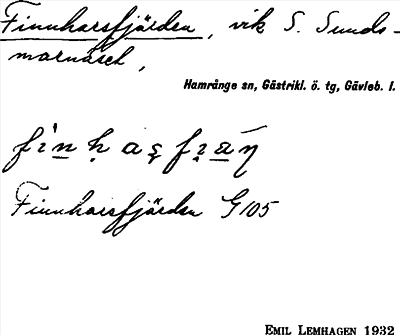 Finnharsfjärden, vik S. Sunds-
marnäset,
Hamrånge sn, Gästrikl. ö. tg, Gävleb. l.
Finnharsfjärden G105
EMIL LEMHAGEN 1932